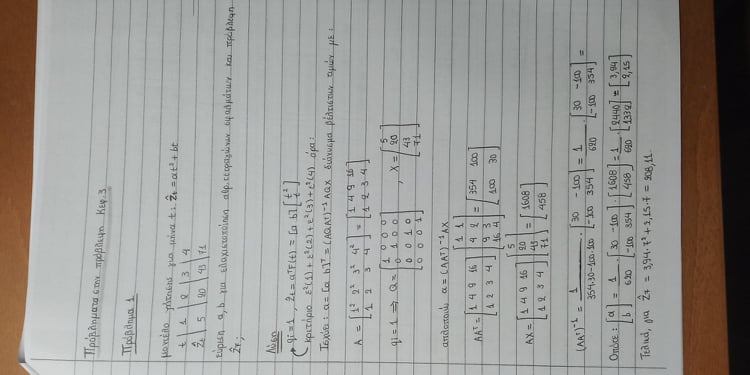 Προβλήματα στην πρόβλεψη Κεφ.3
Πρόβλημα 1
μοντέλο γέννησης για μήνα t: Ẑt = at² + bt
t | 1 | 2 | 3 | 4
Ẑt | 5 | 20 | 43 | 71
εύρεση a, b για ελαχιστοποίηση αθρ. τετραγώνων σφαλμάτων και πρόβλεψη
Ẑ7;
Λύση
qi = 1, Ẑt = aᵀf(t) = [a b] [t² t]
κριτήριο ε²(1) + ε²(2) + ε²(3) + ε²(4) άρα:
Ισχύει: a = [a b]ᵀ = (AQAᵀ)⁻¹AQX διάνυσμα βέλτιστων τιμών με:
A = [1² 2² 3² 4²; 1 2 3 4] = [1 4 9 16; 1 2 3 4]
qi = 1 ⟹ Q = [1 0 0 0; 0 1 0 0; 0 0 1 0; 0 0 0 1], X = [5; 20; 43; 71]
a = (AAᵀ)⁻¹AX
AAᵀ = [1 4 9 16; 1 2 3 4] [1 1; 4 2; 9 3; 16 4] = [354 100; 100 30]
AX = [1 4 9 16; 1 2 3 4] [5; 20; 43; 71] = [1608; 458]
(AAᵀ)⁻¹ = 1/(354·30-100·100) · [30 -100; -100 354] = 1/620 · [30 -100; -100 354] =
Οπότε: [a; b] = 1/620 · [30 -100; -100 354] [1608; 458] = 1/620 [2440; 1332] = [3,94; 2,15]
Τελικά, για Ẑ7 = 3,94·7² + 2,15·7 = 208,11.